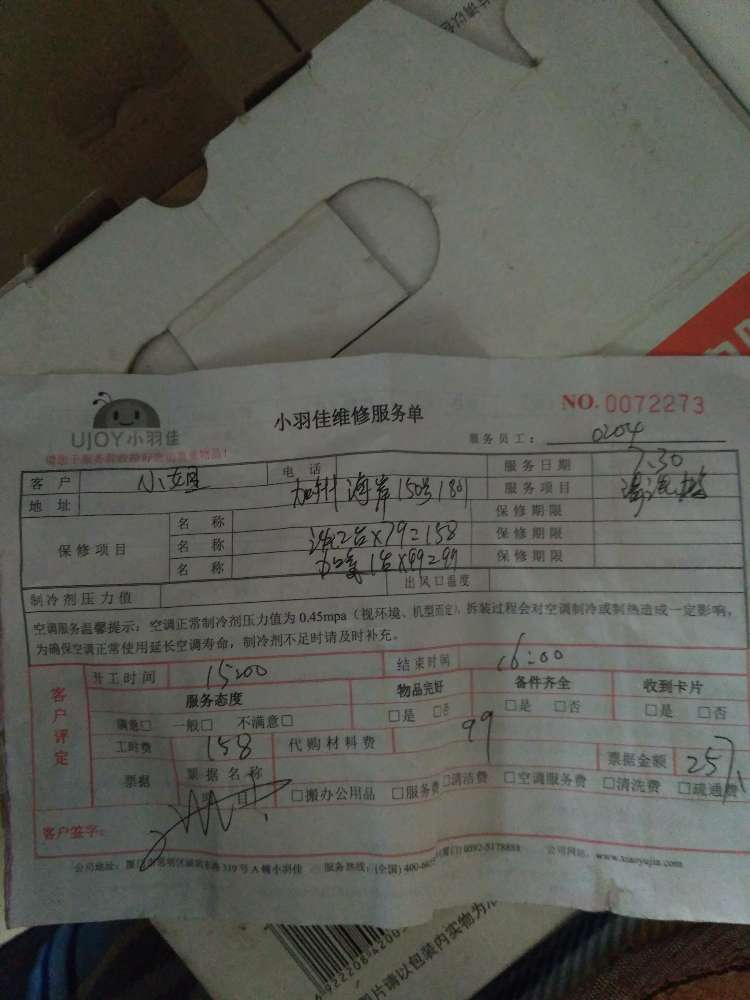 UJOY小羽佳
小羽佳维修服务单
NO.0072273
服务员工: 0204
客户 电话 服务日期 7.30
地址 海岸150号180 服务项目
保修项目 名称 保修期限
名称 2台×79=158 保修期限
名称 1台×99=99 保修期限
制冷剂压力值 出风口温度
空调服务温馨提示:空调正常制冷剂压力值为 0.45mpa(视环境、机型而定),拆装过程会对空调制冷或制热造成一定影响,
为确保空调正常使用延长空调寿命,制冷剂不足时请及时补充。
客户评定
开工时间 15:00 结束时间 16:00
服务态度 物品完好 备件齐全 收到卡片
满意□ 一般□ 不满意□ □是 □否 □是 □否 □是 □否
工时费 158 代购材料费 99
票据 票据名称 票据金额 257
项目 □搬办公用品 □服务费 □清洁费 □空调服务费 □清洗费 □疏通费
客户签字:
公司地址: 319号A幢小羽佳 服务热线:(全国)400-66 0592-5178888 公司网站: www.xiaoyujia.com
片请以包装内实物为